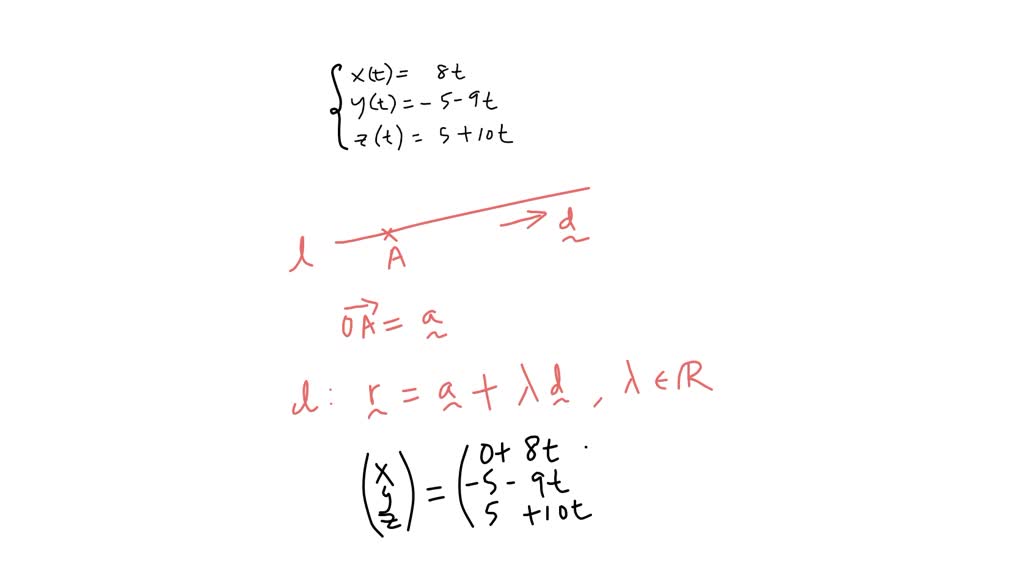 x(t) = 8t
y(t) = -5-9t
z(t) = 5+10t
l A d
OA = a
l: r = a + λd, λ ∈ ℝ
x 0+8t
y = -5-9t
z 5+10t